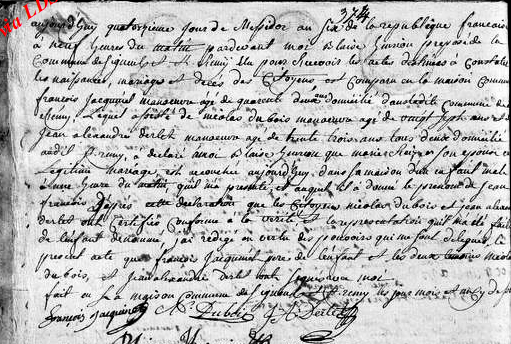 374
aujourdhuy quatorzieme jour de Messidor an Six de la republique francaise
à neuf heures du matin pardevant moi Blaise henrion preposé de la
Commune de et St Remy Elu pour recevoir les actes destinés à Constater
les naissances, mariages et décès des Citoyens est Comparu en la maison Commune
françois Jacquinet manoeuvre agé de quarente deux domicilié audit Commune de
Remy, Lequel assisté de nicolas dubois manoeuvre agé de vingt sept ans et de
Jean alexandre derlet manoeuvre agé de trente trois ans tous deux domicilié
audit St remy, à déclaré à moi Blaise henrion que marie son epouse en
Legitime mariage, est accouchée aujourdhuy, dans sa maison d'un enfant male
à une heure du matin quil ma presenté, et auquel il a donné le prenom de Jean
françois D'après cette declaration que les Citoyens nicolas dubois et jean alexandre
derlet ont Certifiée Conforme à la verité et la representation quil ma été faite
de lenfant denommé, j'ai redigé en vertu des pouvoirs qui me sont delegués, le
present acte que françois Jacquinet pere de lenfant et les deux temoins nicolas
dubois, et jean alexandre derlet ont Signé avec moi
fait en la maison Commune de St remy les jour mois et an de
françois jacquinet N. Duboit J A Derlet